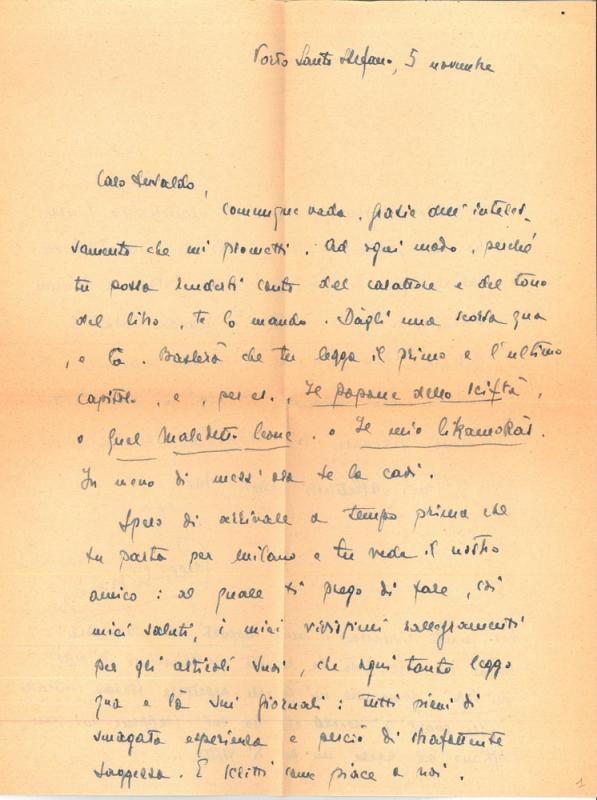 Porto Santo Stefano, 5 novembre
Caro Arnaldo,
comunque vada, grazie dell'interes-
samento che mi prometti. Ad ogni modo, perché
tu possa renderti conto del carattere e del tono
del libro, te lo mando. Dàgli una scorsa qua
e là. Basterà che tu legga il primo e l'ultimo
capitolo, e, per es., Il papone dello
o Quel maledetto leone, o Il mio likamokàs.
In meno di mezz'ora te la cavi.
Spero di arrivare a tempo prima che
tu parta per Milano e tu veda il nostro
amico: al quale ti prego di fare, coi
miei saluti, i miei vivissimi rallegramenti
per gli articoli suoi, che ogni tanto leggo
qua e là sui giornali: tutti pieni di
smagata esperienza e perciò di strafottente
saggezza. E scritti come piace a noi.
1